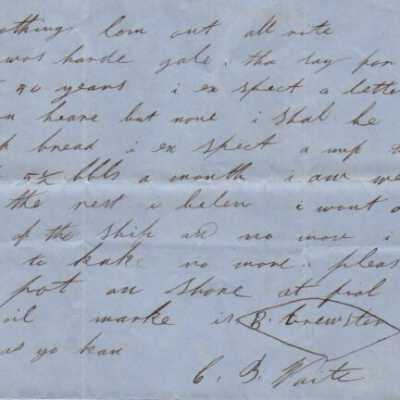 othing lorn out all rite
was harde gale. tha say for
40 years i ex spect a letter
heare but none i shal be
bread i ex spect a
5½ bbls a month i am we
the rest i belen i wont
of the ship and no more i
to kake no more pleas
pot on shore at
oil marke is B. Brewster
as yo kan
C. B.